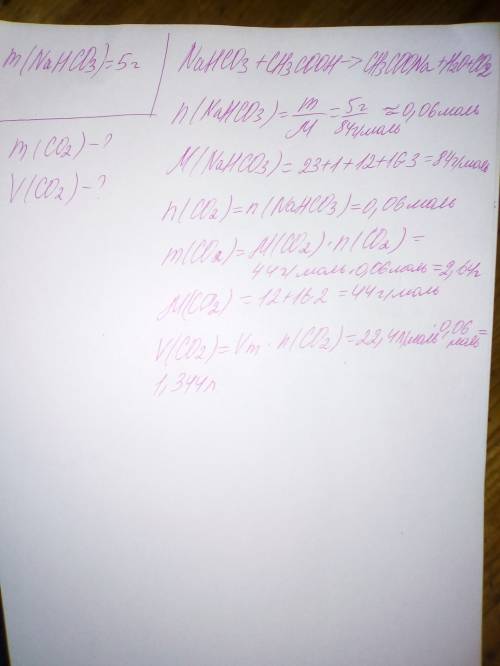 m(NaHCO3)=5г
NaHCO3+CH3COOH->CH3COONa+H2O+CO2
m(CO2)-?
V(CO2)-?
n(NaHCO3)=m/M=5г/84г/моль≈0,06моль
M(NaHCO3)=23+1+12+16·3=84г/моль
n(CO2)=n(NaHCO3)=0,06моль
m(CO2)=M(CO2)·n(CO2)=
44г/моль·0,06моль=2,64г
M(CO2)=12+16·2=44г/моль
V(CO2)=Vm·n(CO2)=22,4л/моль·0,06моль=
1,344л